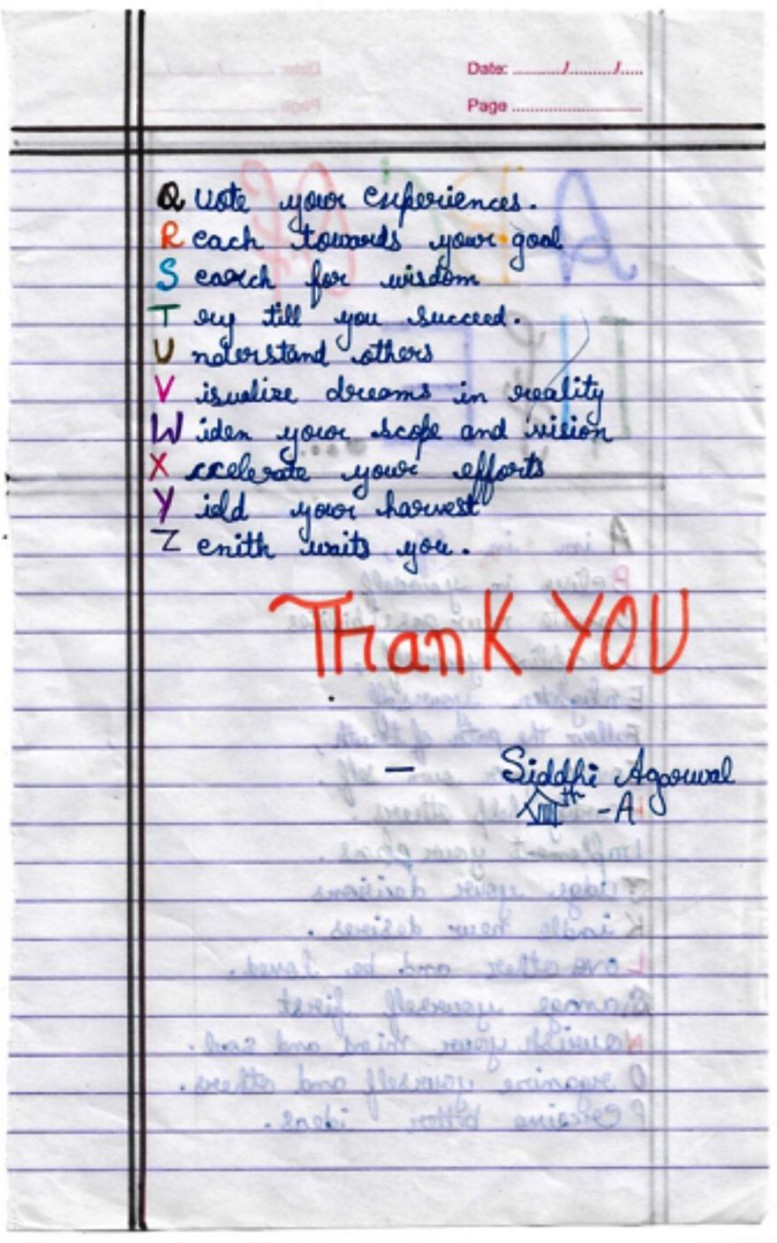 Date: ......../......../.....
Page ..............................
Quote your experiences.
Reach towards your goal
Search for wisdom
Try till you succeed.
Understand others
Visualize dreams in reality
Widen your scope and vision
Xccelerate your efforts
Yield your harvest
Zenith waits you.
Thank YOU
— Siddhi Agarwal
VIIIth -A